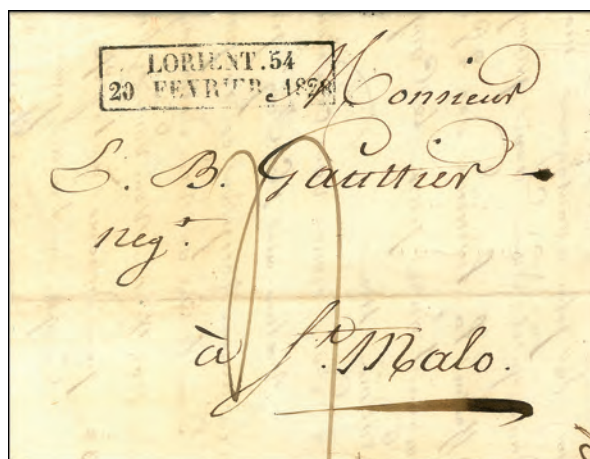 LORIENT.54
20 FEVRIER 1828
Monsieur
E. B. Gaultier
negt.
à St. Malo.